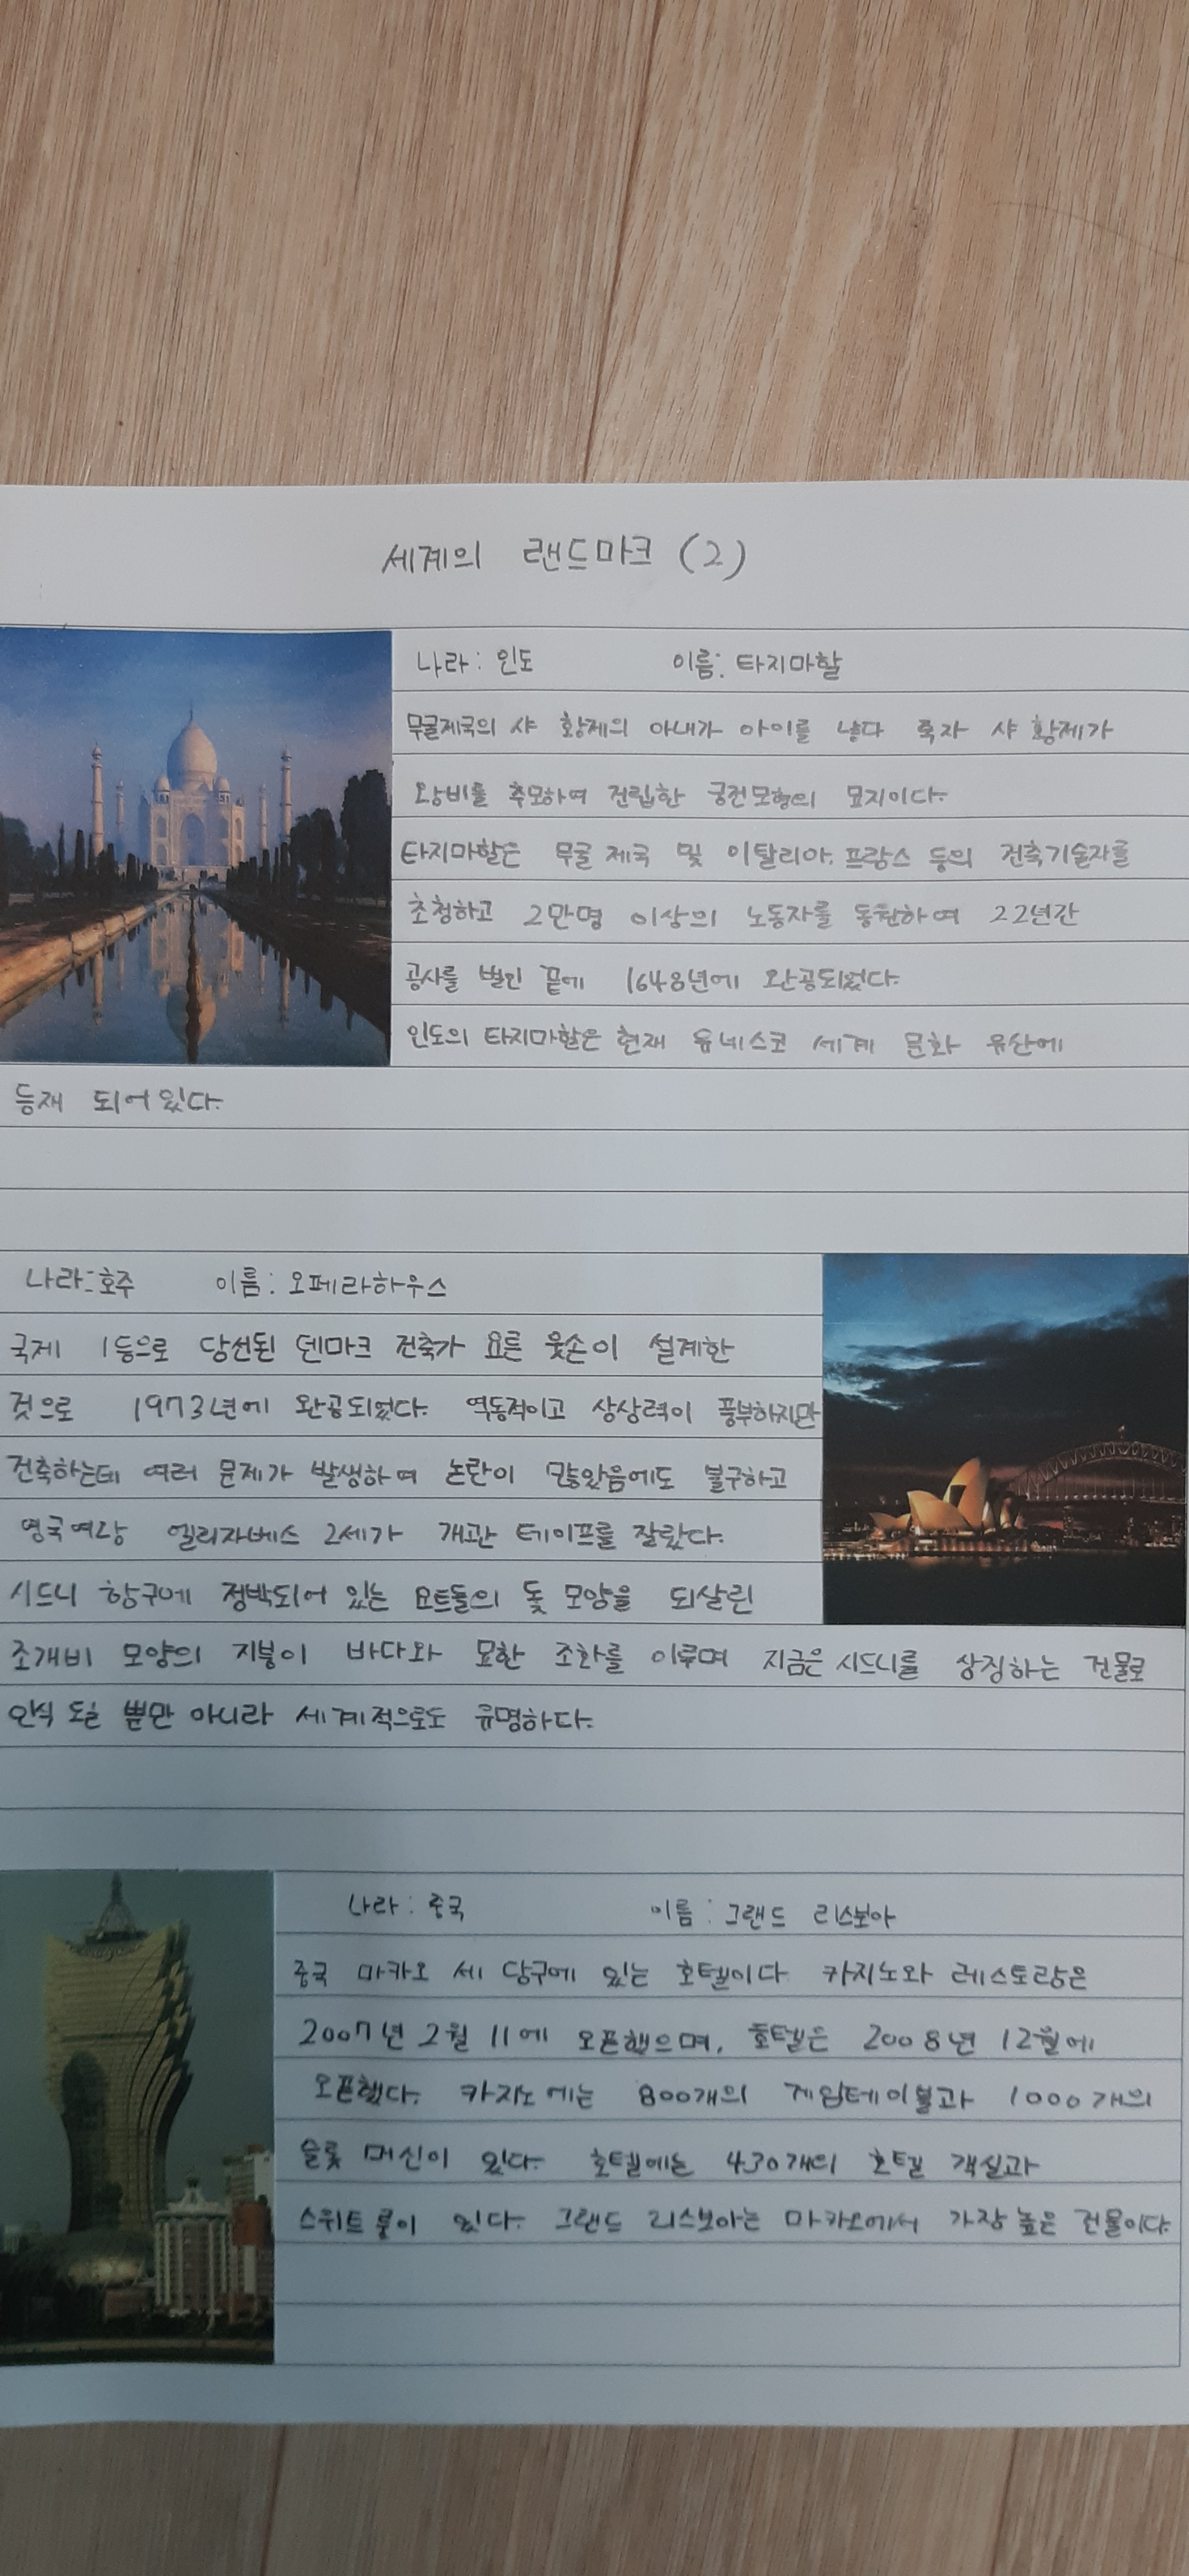 세계의 랜드마크 (2)
나라: 인도 이름: 타지마할
무굴제국의 샤 황제의 아내가 아이를 낳다 죽자 샤 황제가
왕비를 추모하여 건립한 궁전모형의 묘지이다.
타지마할은 무굴 제국 및 이탈리아, 프랑스 등의 건축기술자를
초청하고 2만명 이상의 노동자를 동원하여 22년간
공사를 벌인 끝에 1648년에 완공되었다.
인도의 타지마할은 현재 유네스코 세계 문화 유산에
등재 되어있다.
나라: 호주 이름: 오페라하우스
국제 1등으로 당선된 덴마크 건축가 요른 웃손이 설계한
것으로 1973년에 완공되었다. 역동적이고 상상력이 풍부하지만
건축하는데 여러 문제가 발생하여 논란이 많았음에도 불구하고
영국여왕 엘리자베스 2세가 개관 테이프를 잘랐다.
시드니 항구에 정박되어 있는 요트들의 돛 모양을 되살린
조개비 모양의 지붕이 바다와 묘한 조화를 이루며 지금은 시드니를 상징하는 건물로
인식 될 뿐만 아니라 세계적으로도 유명하다.
나라: 중국 이름: 그랜드 리스보아
중국 마카오 세 당구에 있는 호텔이다 카지노와 레스토랑은
2007년 2월 11에 오픈했으며, 호텔은 2008년 12월에
오픈했다. 카지노에는 800개의 게임테이블과 1000개의
슬롯 머신이 있다. 호텔에는 430개의 호텔 객실과
스위트 룸이 있다. 그랜드 리스보아는 마카오에서 가장 높은 건물이다.